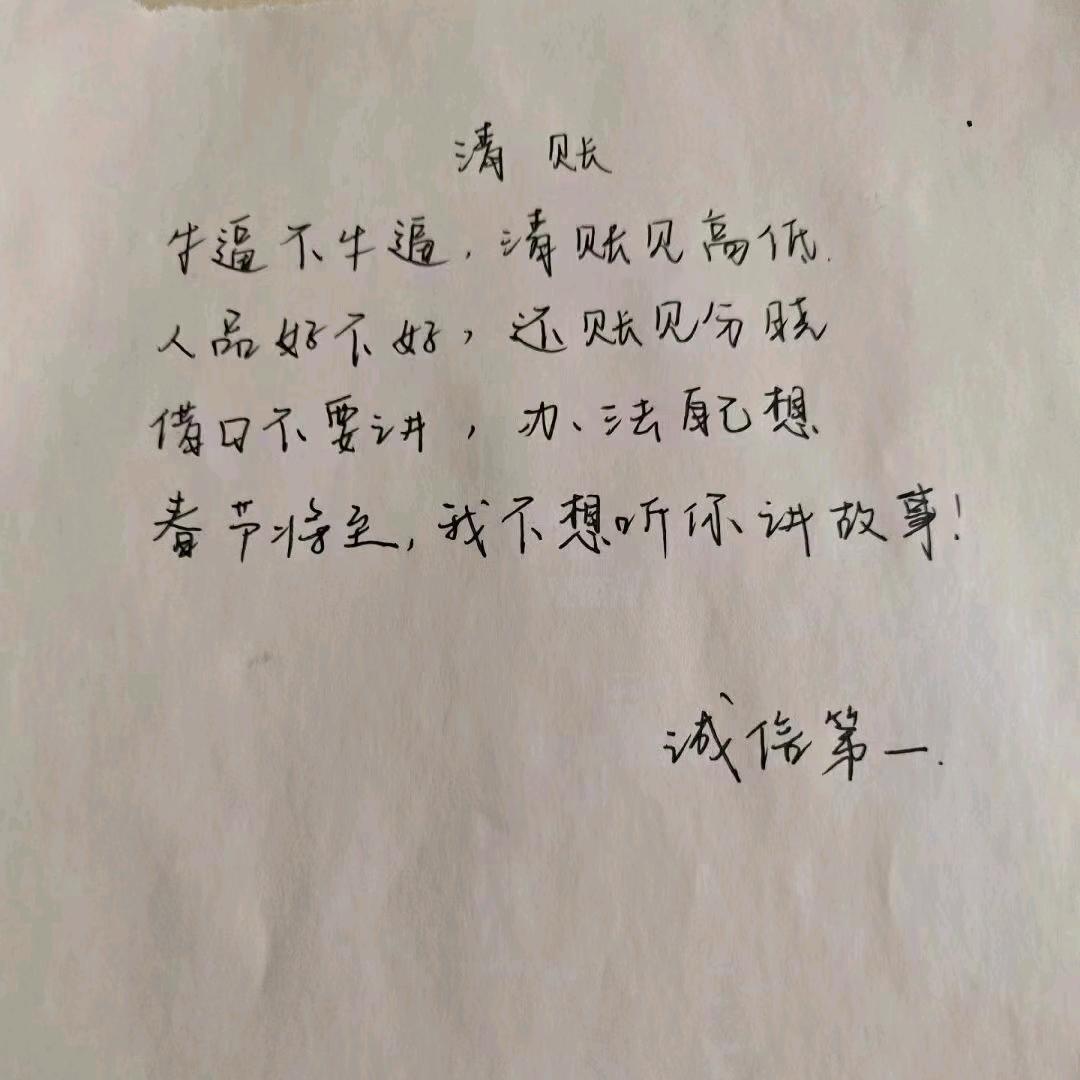 清账
牛逼不牛逼，清账见高低.
人品好不好，还账见分晓
借口不要讲，办法自己想
春节将至，我不想听你讲故事！
诚信第一.